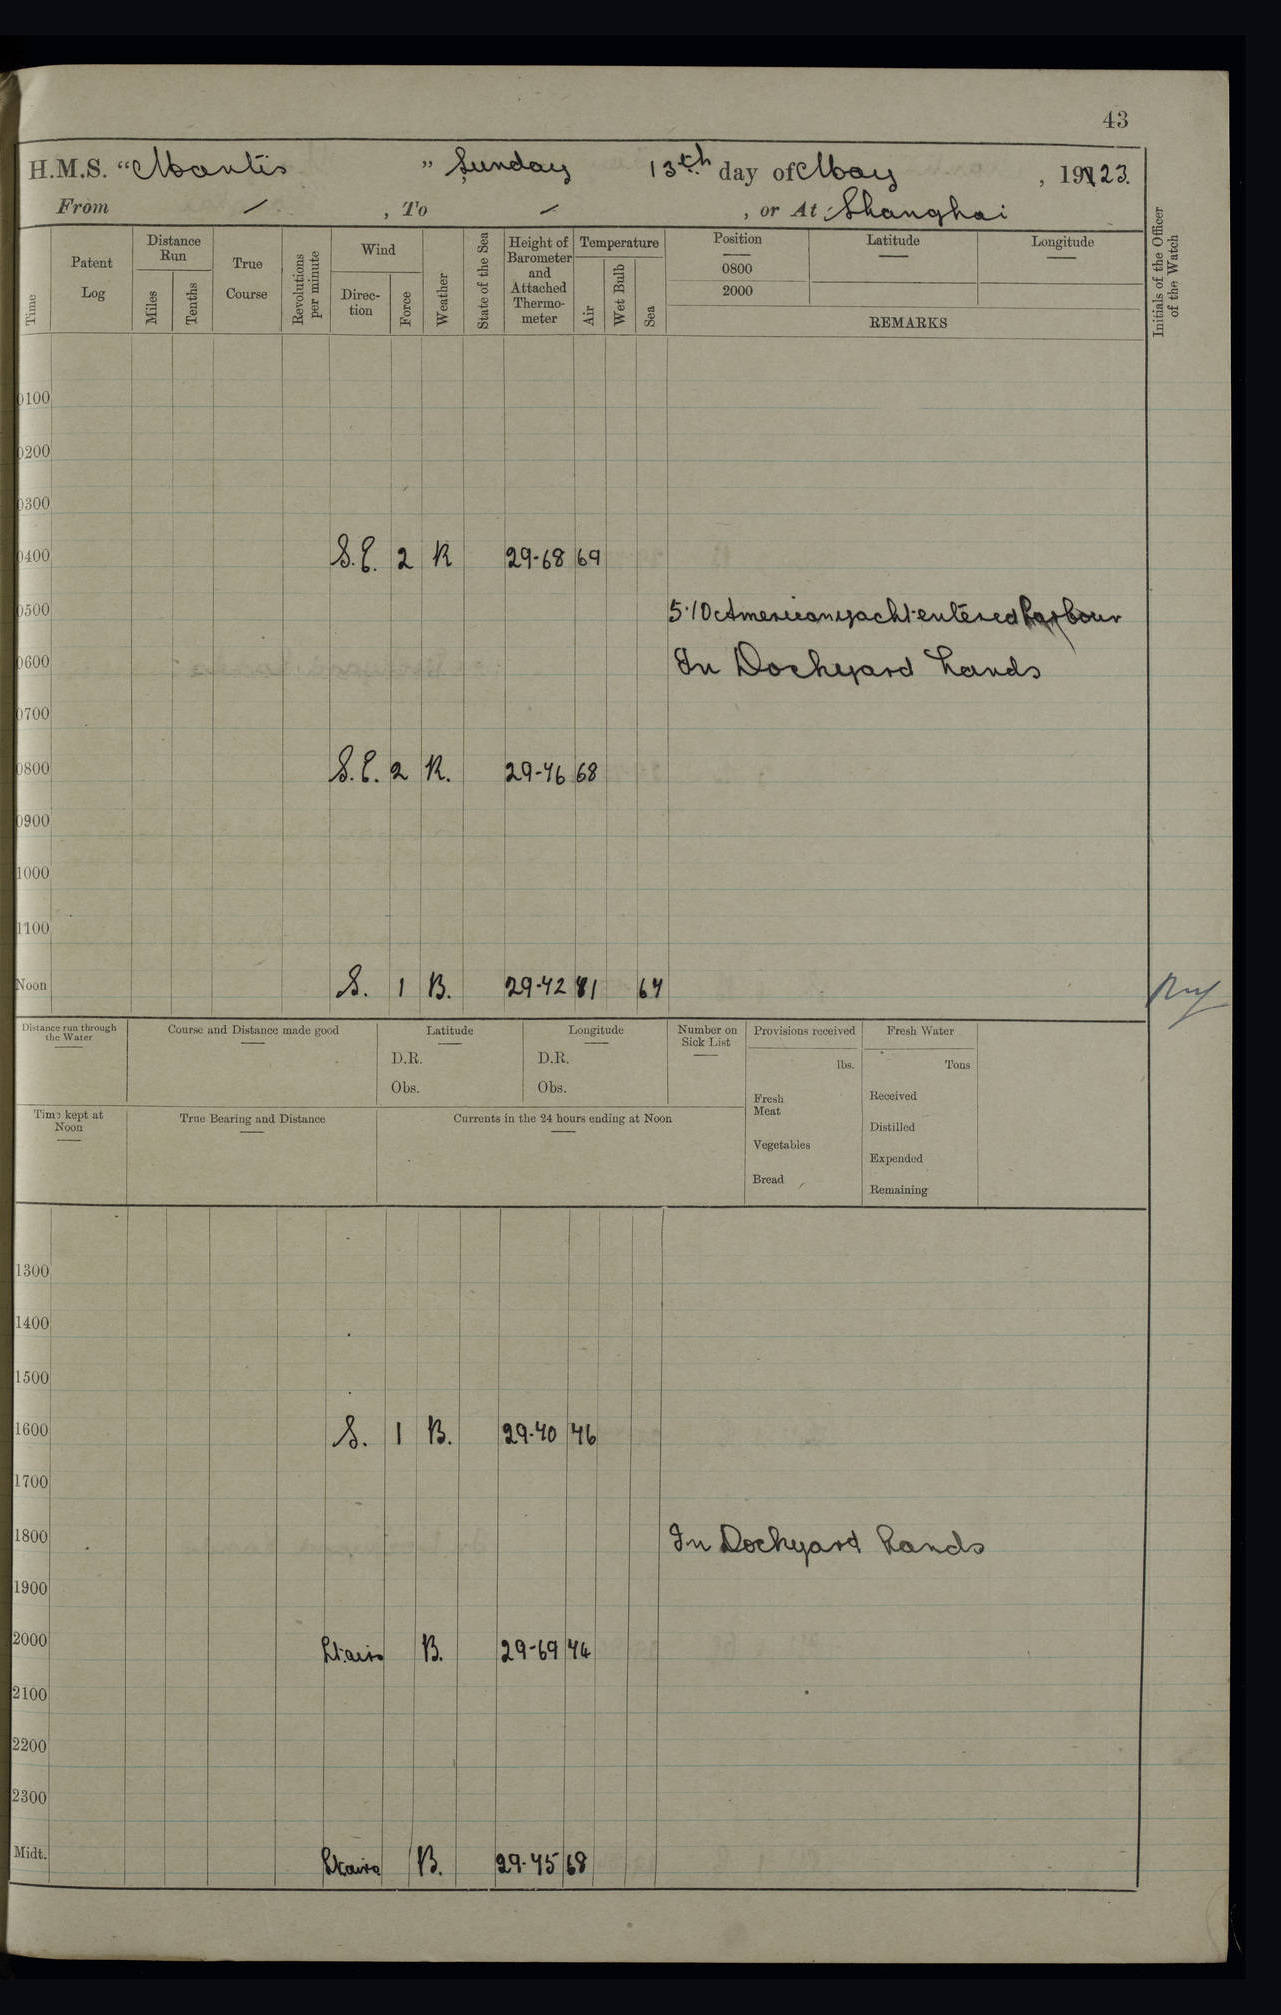 43
H.M.S. "Mantis" Sunday 13th day of May, 1923.
From / , To / , or At Shanghai
Time
Patent Log
Distance Run
Miles
Tenths
True Course
Revolutions per minute
Wind
Direction
Force
Weather
State of the Sea
Height of Barometer and Attached Thermometer
Temperature
Air
Wet Bulb
Sea
Position
0800
2000
Latitude
Longitude
REMARKS
Initials of the Officer of the Watch
0100
0200
0300
0400 S.E. 2 R 29-68 69
0500 5.10 American yacht entered harbour
0600 In Dockyard hands
0700
0800 S.E. 2 R. 29-76 68
0900
1000
1100
Noon S. 1 B. 29-72 81 67
Distance run through the Water
Course and Distance made good
Latitude
D.R.
Obs.
Longitude
D.R.
Obs.
Number on Sick List
Provisions received
lbs.
Fresh Meat
Vegetables
Bread
Fresh Water
Tons
Received
Distilled
Expended
Remaining
Time kept at Noon
True Bearing and Distance
Currents in the 24 hours ending at Noon
1300
1400
1500
1600 S. 1 B. 29-70 76
1700
1800 In Dockyard hands
1900
2000 Lt.airs B. 29-69 74
2100
2200
2300
Midt. Lt airs B. 29-75 68